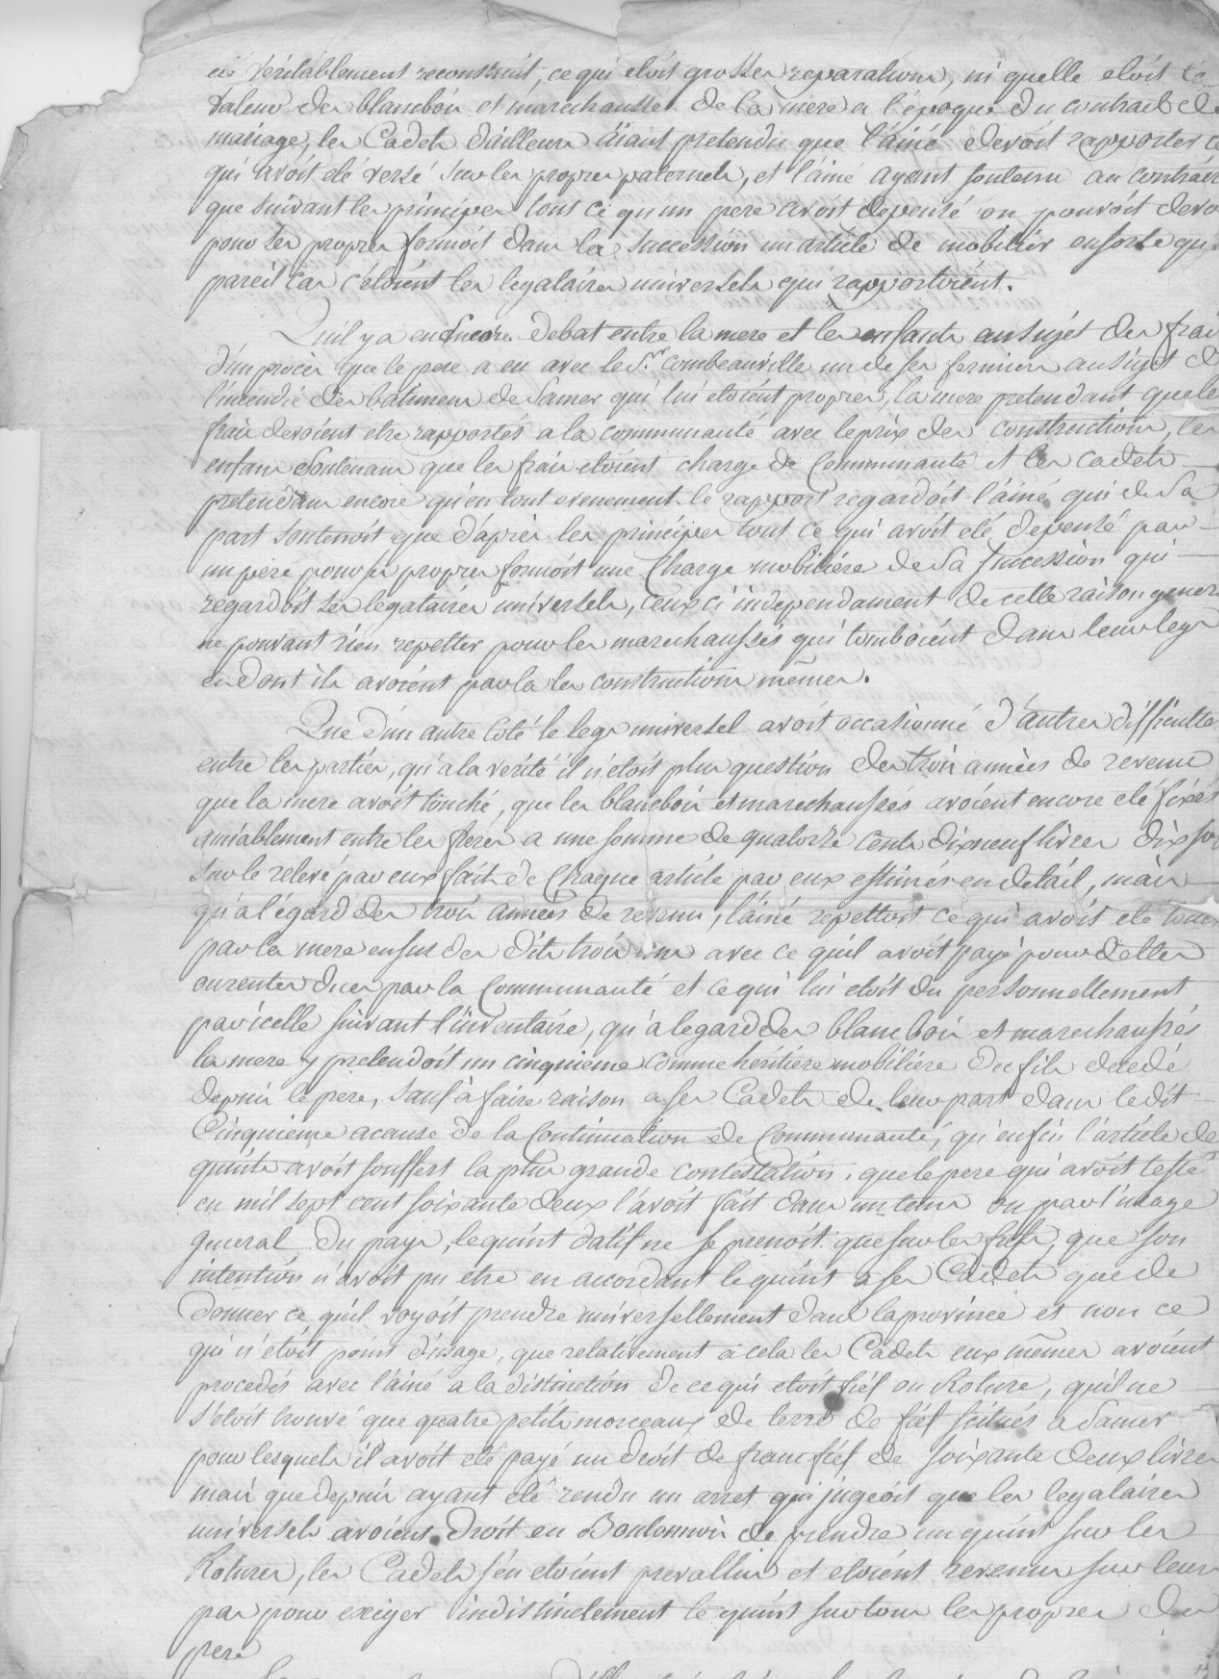 été véritablement reconstruit, ce qui etoit grosses reparations, ni quelle etoit la
Valeur des blancbois et marechaussés de la mere a l'époque du contract de
mariage, les Cadets d'ailleurs aïant pretendu que l'ainé devoit rapporter ce
qui avoit été versé sur les propres paternels, et l'ainé ayant soutenu au contraire
que suivant les principes tout ce qu'un pere avoit depensé ou pouvoit devoir
pour ses propres formoit dans la succession un article de mobilier ensorte qu'en
pareil cas c'etoient les legataires universels qui rapportoient.
Quil y a eu encore debat entre la mere et les enfants au sujet des frais
d'un procès que le pere a eu avec le Sr. combeauville un de ses fermiers au sujet de
l'incendie des batimens de Samer qui lui etoient propres, la mere pretendant que les
frais devoient etre rapportés a la communauté avec le prix des constructions, les
enfans Soutenans que les frais etoient charge de Communauté et les cadets
pretendans encore qu'en tout evenement le rapport regardoit l'ainé, qui de sa
part soutenoit que d'après les principes tout ce qui avoit eté depensé par
un pere pour ses propres formoit une Charge mobiliére de sa succession qui
regardoit ses legataires universels, ceux ci independament de cette raison generale
ne pouvant rien repetter pour les marechaussés qui tomboient dans leur legs
et dont ils avoient par la les constructions mêmes.
Que d'un autre coté le legs universel avoit occasionné d'autres difficultés
entre les parties, qu'a la verité il n'etoit plus question des trois années de revenu
que la mere avoit touché, que les blancbois et marechaussés avoient encore eté fixés
amiablement entre les freres a une somme de quatorze cents dixneuf livres dix sols
sur le relevé par eux fait de Chaque article par eux estimés en detail, mais
qu'a l'égard des trois années de revenu, l'ainé repettoit ce qui avoit eté touché
par la mere ensus des dits trois ans avec ce qu'il avoit payé pour dettes
ou rentes dues par la Communauté et ce qui lui etoit du personnellement
par icelle suivant l'inventaire, qu'a l'egard des blancbois et marechaussés
la mere y pretendoit un cinquieme comme heritiére mobiliére du fils decedé
depuis le pere, sauf à faire raison a ses Cadets de leur part dans ledit
Cinquieme acause de la Continuation de Communauté, qu'enfin l'article des
quints avoit souffert la plus grande contestation; que le pere qui avoit testé
en mil sept cent soixante deux l'avoit fait dans un tems ou par l'usage
general du pays, le quint datif ne se prenoit que sur les fiefs, que son
intention n'avoit pu etre en accordant le quint a ses Cadets que de
donner ce qu'il voyoit prendre universellement dans la province et non ce
qui n'etoit point d'usage, que relativement à cela les Cadets eux mêmes avoient
procedés avec l'ainé a la distinction de ce qui etoit fief ou Roture, qu'il ne
s'etoit trouvé que quatre petits morceaux de terre de fief scitués a Samer
pour lesquels il avoit eté payé un droit de franc fief de soixante deux livres
mais que depuis ayant eté rendu un arret qui jugeoit que les legataires
universels avoient droit en Boulonnois de prendre un quint sur les
Rotures, les Cadets s'en etoient prevallus et etoient revenus sur leurs
pas pour exiger indistinctement le quint sur tous les propres du
pere